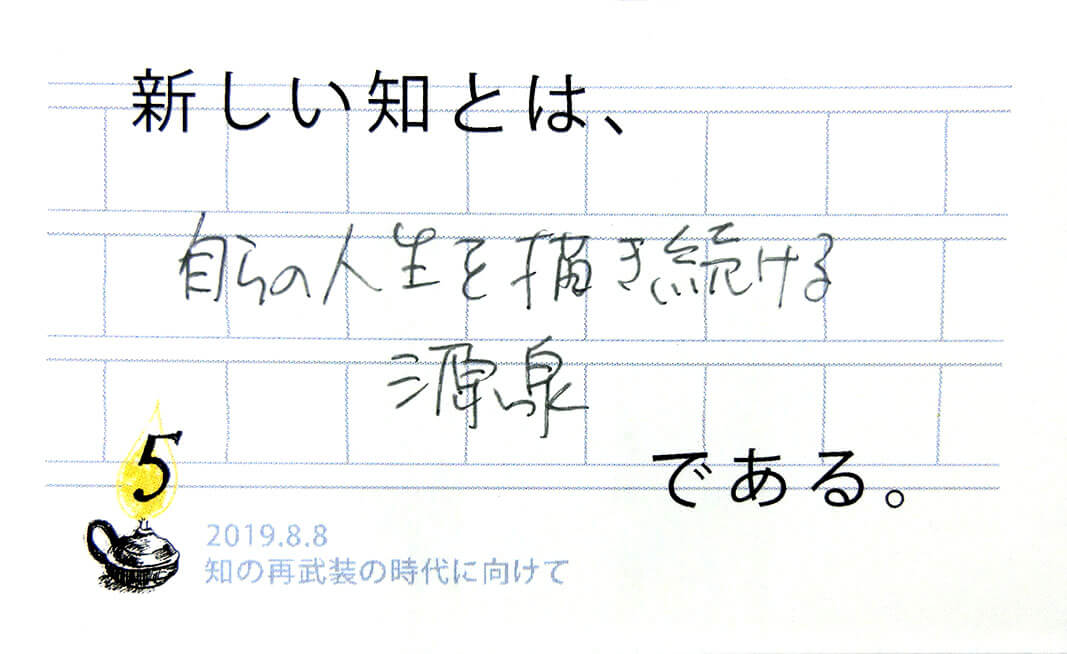 新しい知とは、
自らの人生を描き続ける
源泉
である。
5
2019.8.8
知の再武装の時代に向けて